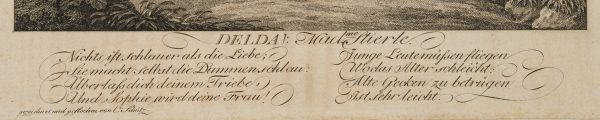 DELDA! Mad.lle Stierle.
Nichts ist schlauer als die Liebe;
Sie macht selbst die Dummen schlau:
Überlaß dich deinem Triebe,
Und Sophie wird deine Frau!
Junge Leute müßen fliegen
Wo das Alter schleicht;
Alte Gecken zu betrügen
Ist sehr leicht.
gezeichnet und gestochen von C. Schütz